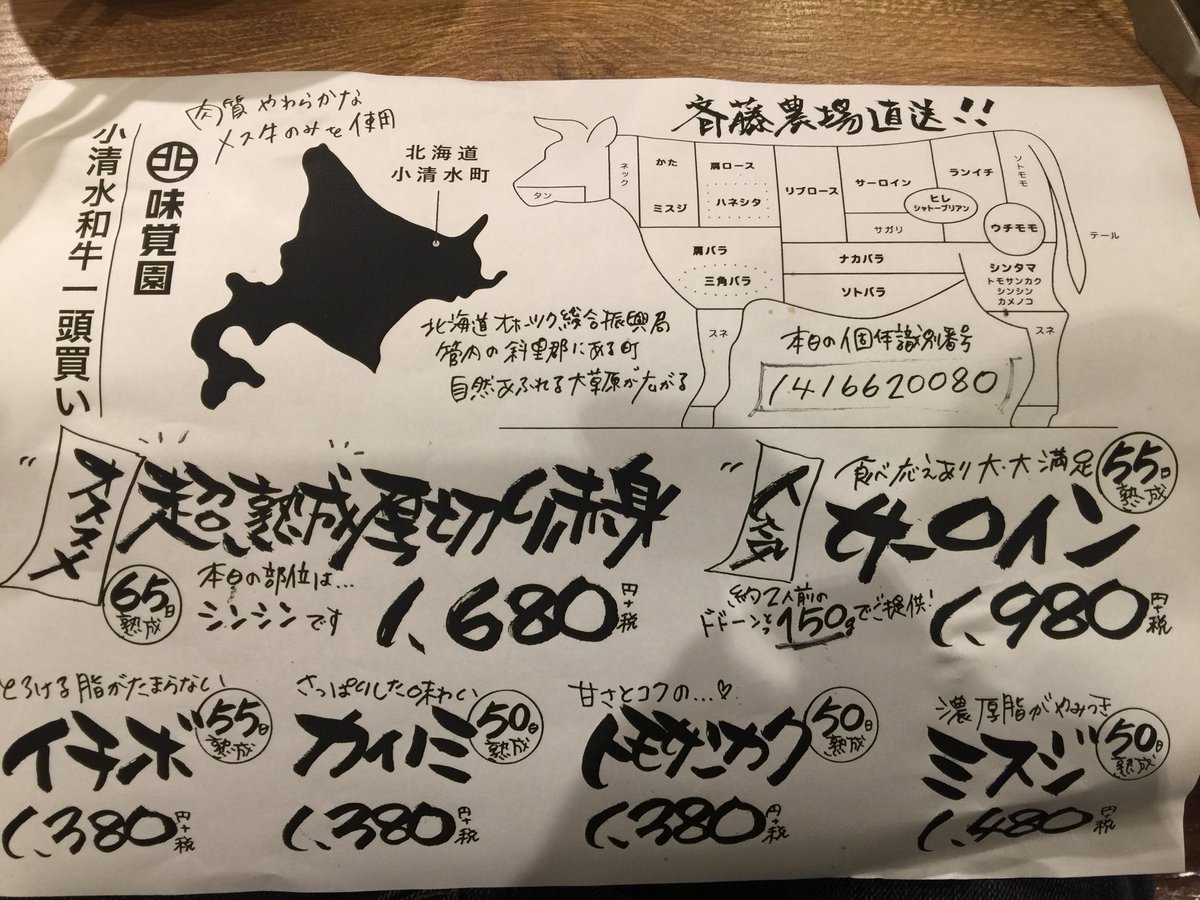 小清水和牛一頭買い
北 味覚園
肉質やわらかな
メス牛のみを使用
北海道
小清水町
北海道オホーツク総合振興局
管内の斜里郡にある町
自然あふれる大草原が広がる
斉藤農場直送!!
タン
ネック
かた
ミスジ
肩ロース
ハネシタ
リブロース
サーロイン
サガリ
ヒレ
シャトーブリアン
ランイチ
ソトモモ
ウチモモ
テール
肩バラ
三角バラ
ナカバラ
ソトバラ
シンタマ
トモサンカク
シンシン
カメノコ
スネ
スネ
本日の個体識別番号
1416620080
オススメ
超熟成厚切り赤身
65日熟成
本日の部位は…
シンシンです
1,680円+税
食べ応えあり大・大満足
55日熟成
サーロイン
約2人前の
ドドーンと150gでご提供!
1,980円+税
とろける脂がたまらない
イチボ
55日熟成
1,380円+税
さっぱりした味わい
カイノミ
50日熟成
1,380円+税
甘さとコクの…♡
トモサンカク
50日熟成
1,380円+税
濃厚脂がやみつき
ミスジ
50日熟成
1,480円+税